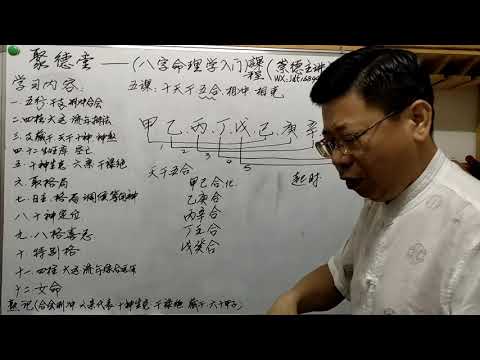 聚德堂——(八字命理学入门)課程(崇德主讲
学习内容: 五課:十天干五合相冲相克
一.五行干支刑冲合会
二.四柱大运流年排法
三.支藏干天干十神神煞
四.十二生旺库 空亡
五.十神生克 六亲
六.取格局
七.日主.格局 调候
八.十神定位
九.八格喜忌
十.特别格
十一.四柱大运流年综合
十二.女命
甲乙.丙.丁.戊.己.庚.辛
1 2 3 4 5
天干五合 起时
甲己合化
乙庚合
丙辛合
丁壬合
戊癸合
熟记(合会刑冲 六亲代表 十神生克 藏干 六十甲子)